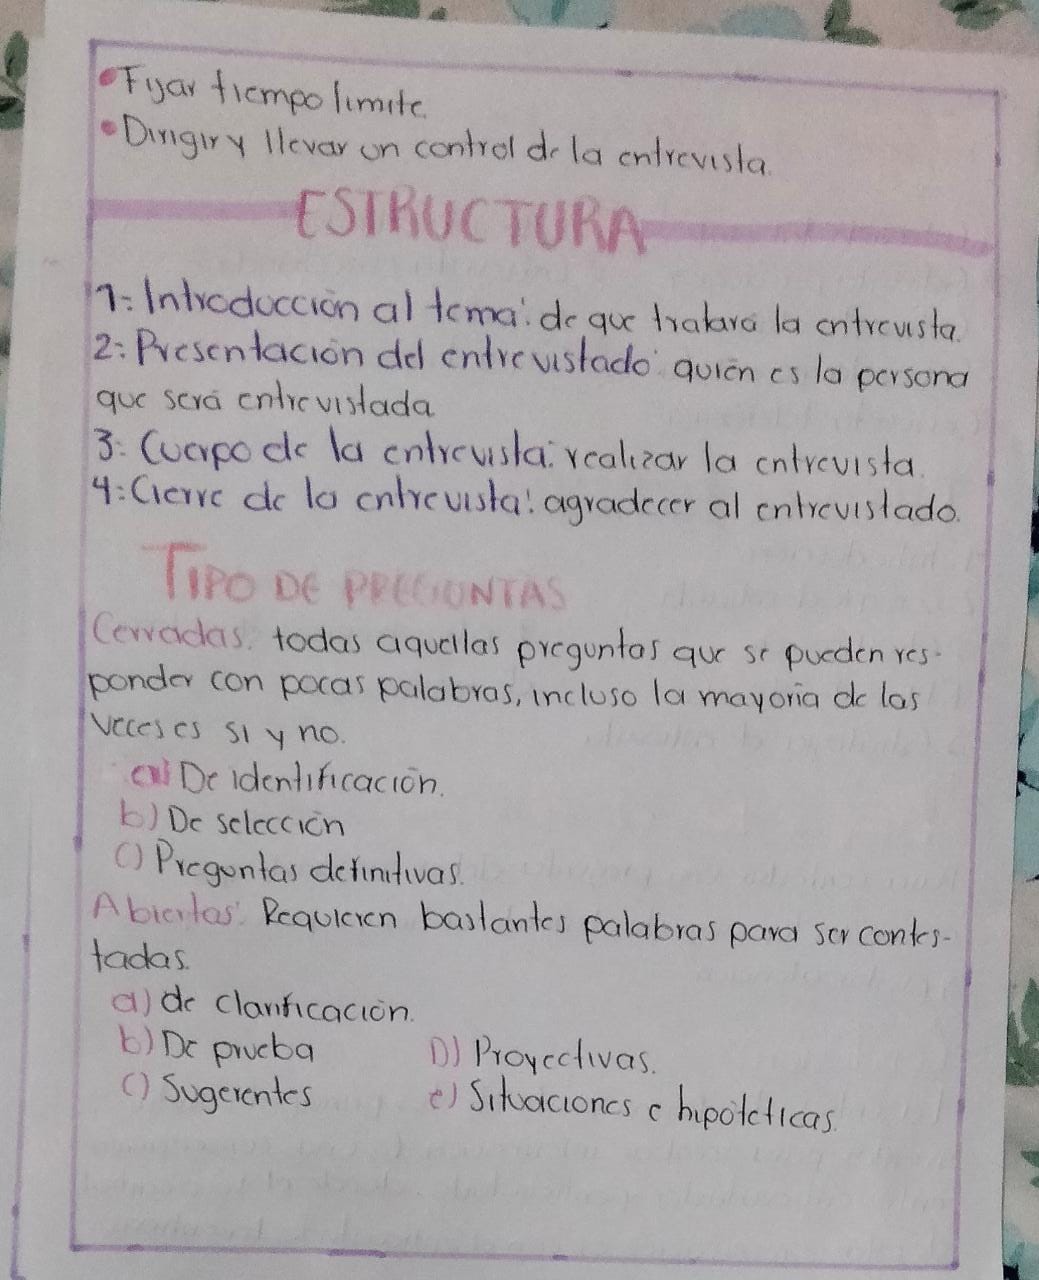 • Fijar tiempo limite.
• Dirigir y llevar un control de la entrevista.
ESTRUCTURA
1: Introducción al tema: de que tratara la entrevista.
2: Presentación del entrevistado: quién es la persona
que será entrevistada
3: Cuerpo de la entrevista: realizar la entrevista.
4: Cierre de la entrevista: agradecer al entrevistado.
TIPO DE PREGUNTAS
Cerradas: todas aquellas preguntas que se pueden res-
ponder con pocas palabras, incluso la mayoría de las
veces es si y no.
a) De identificación.
b) De selección
c) Preguntas definitivas.
Abiertas: Requieren bastantes palabras para ser contes-
tadas.
a) de clarificación.
b) De prueba D) Proyectivas.
c) Sugerentes e) Situaciones e hipotéticas.